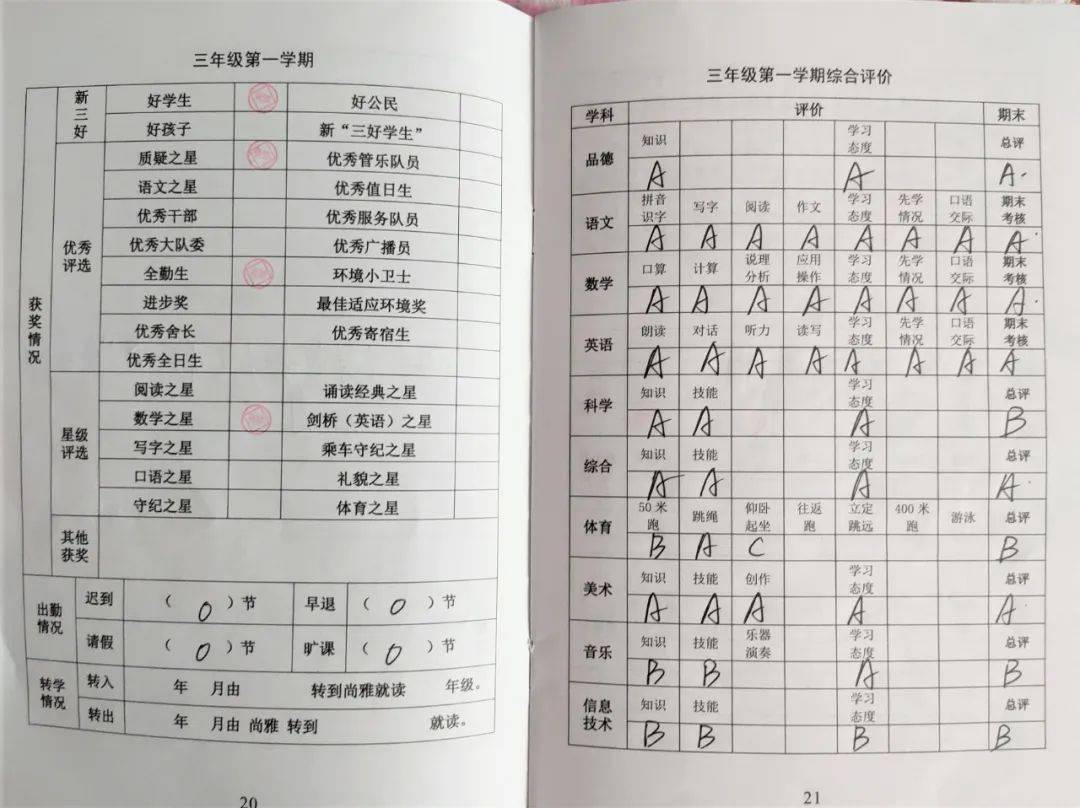 三年级第一学期
获奖情况
新三好
好学生 好公民
好孩子 新“三好学生”
优秀评选
质疑之星 优秀管乐队员
语文之星 优秀值日生
优秀干部 优秀服务队员
优秀大队委 优秀广播员
全勤生 环境小卫士
进步奖 最佳适应环境奖
优秀舍长 优秀寄宿生
优秀全日生
星级评选
阅读之星 诵读经典之星
数学之星 剑桥（英语）之星
写字之星 乘车守纪之星
口语之星 礼貌之星
守纪之星 体育之星
其他获奖
出勤情况
迟到 （ 0 ）节 早退 （ 0 ）节
请假 （ 0 ）节 旷课 （ 0 ）节
转学情况
转入 年 月由 转到尚雅就读 年级。
转出 年 月由 尚雅 转到 就读。
20
三年级第一学期综合评价
学科 评价 期末
品德 知识 学习态度 总评
A A A
语文 拼音识字 写字 阅读 作文 学习态度 先学情况 口语交际 期末考核
A A A A A A A A
数学 口算 计算 说理分析 应用操作 学习态度 先学情况 口语交际 期末考核
A A A A A A A A
英语 朗读 对话 听力 读写 学习态度 先学情况 口语交际 期末考核
A A A A A A A A
科学 知识 技能 学习态度 总评
A A A B
综合 知识 技能 学习态度 总评
A A A A
体育 50米跑 跳绳 仰卧起坐 往返跑 立定跳远 400米跑 游泳 总评
B A C B
美术 知识 技能 创作 学习态度 总评
A A A A A
音乐 知识 技能 乐器演奏 学习态度 总评
B B A B
信息技术 知识 技能 学习态度 总评
B B B B
21